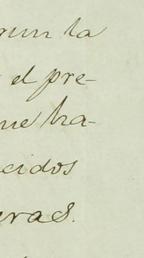 run la
el pre-
que ha-
cidos
eras.